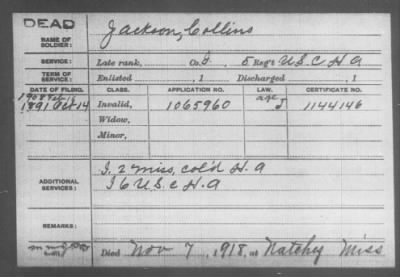 DEAD
NAME OF SOLDIER: Jackson, Collins
SERVICE: Late rank, Co. I, 5 Reg't U.S.C.H.A
TERM OF SERVICE: Enlisted , 1 Discharged , 1
DATE OF FILING. CLASS. APPLICATION NO. LAW. CERTIFICATE NO.
1908 Feb
1891 Oct 14 Invalid, 1065960 age J 1144146
Widow,
Minor,
ADDITIONAL SERVICES: I. 2 Miss. col'd H.A
I 6 U.S.C H.A
REMARKS:
Died Nov 7, 1918, at Natchez Miss